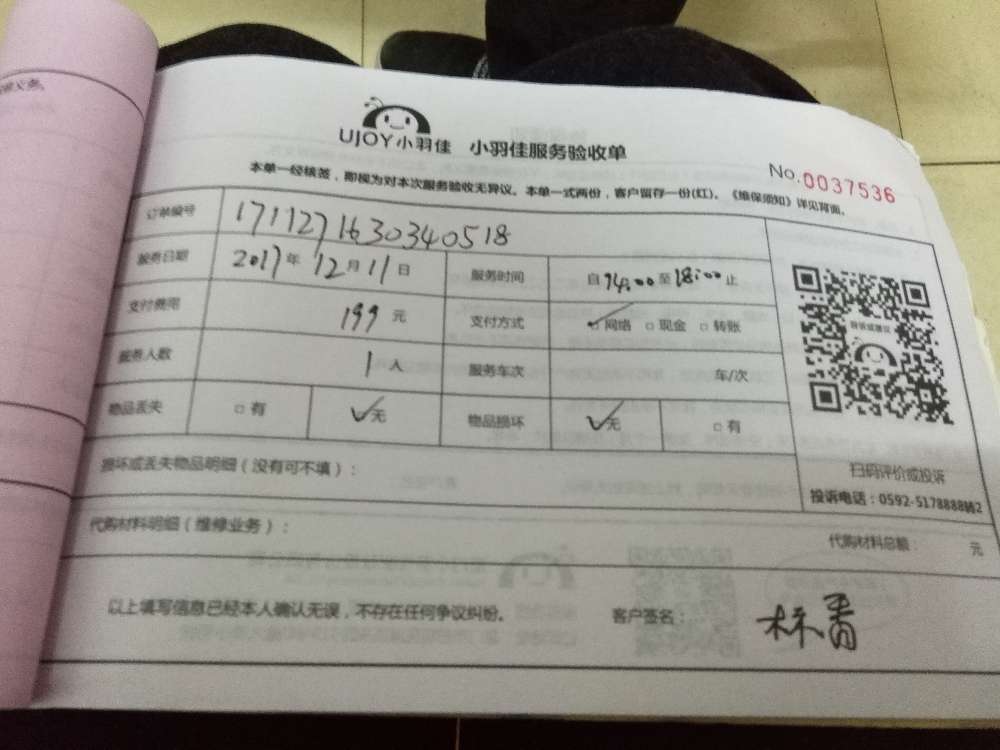 UJOY小羽佳 小羽佳服务验收单
No.0037536
本单一经核签，即视为对本次服务验收无异议。本单一式两份，客户留存一份(红)。《维保须知》详见背面。
订单编号 1711271630340518
服务日期 2017年12月11日 服务时间 自14:00至18:00止
支付费用 199元 支付方式 ☑网络 □现金 □转账
服务人数 1人 服务车次 车/次
物品丢失 □有 ☑无 物品损坏 ☑无 □有
扫码评价或投诉
投诉电话：0592-5178888转2
损坏或丢失物品明细（没有可不填）：
代购材料明细（维修业务）： 代购材料总额： 元
以上填写信息已经本人确认无误，不存在任何争议纠纷。 客户签名： 林青